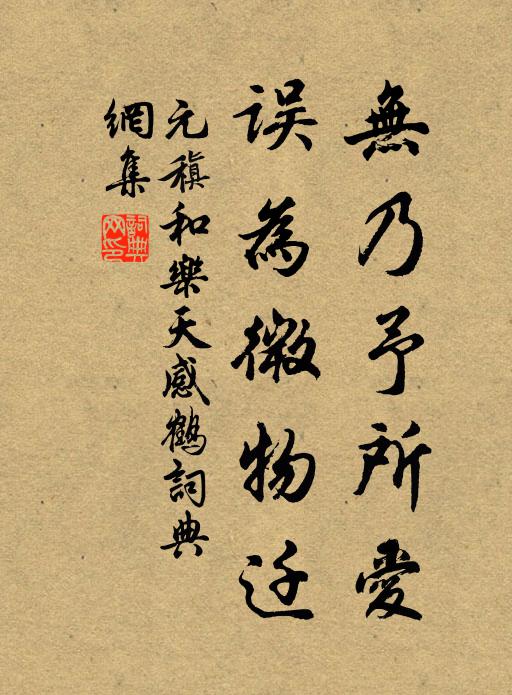 無乃予所愛
误為微物迁
元稹和樂天感鶴詞典
網集
詞典
网印